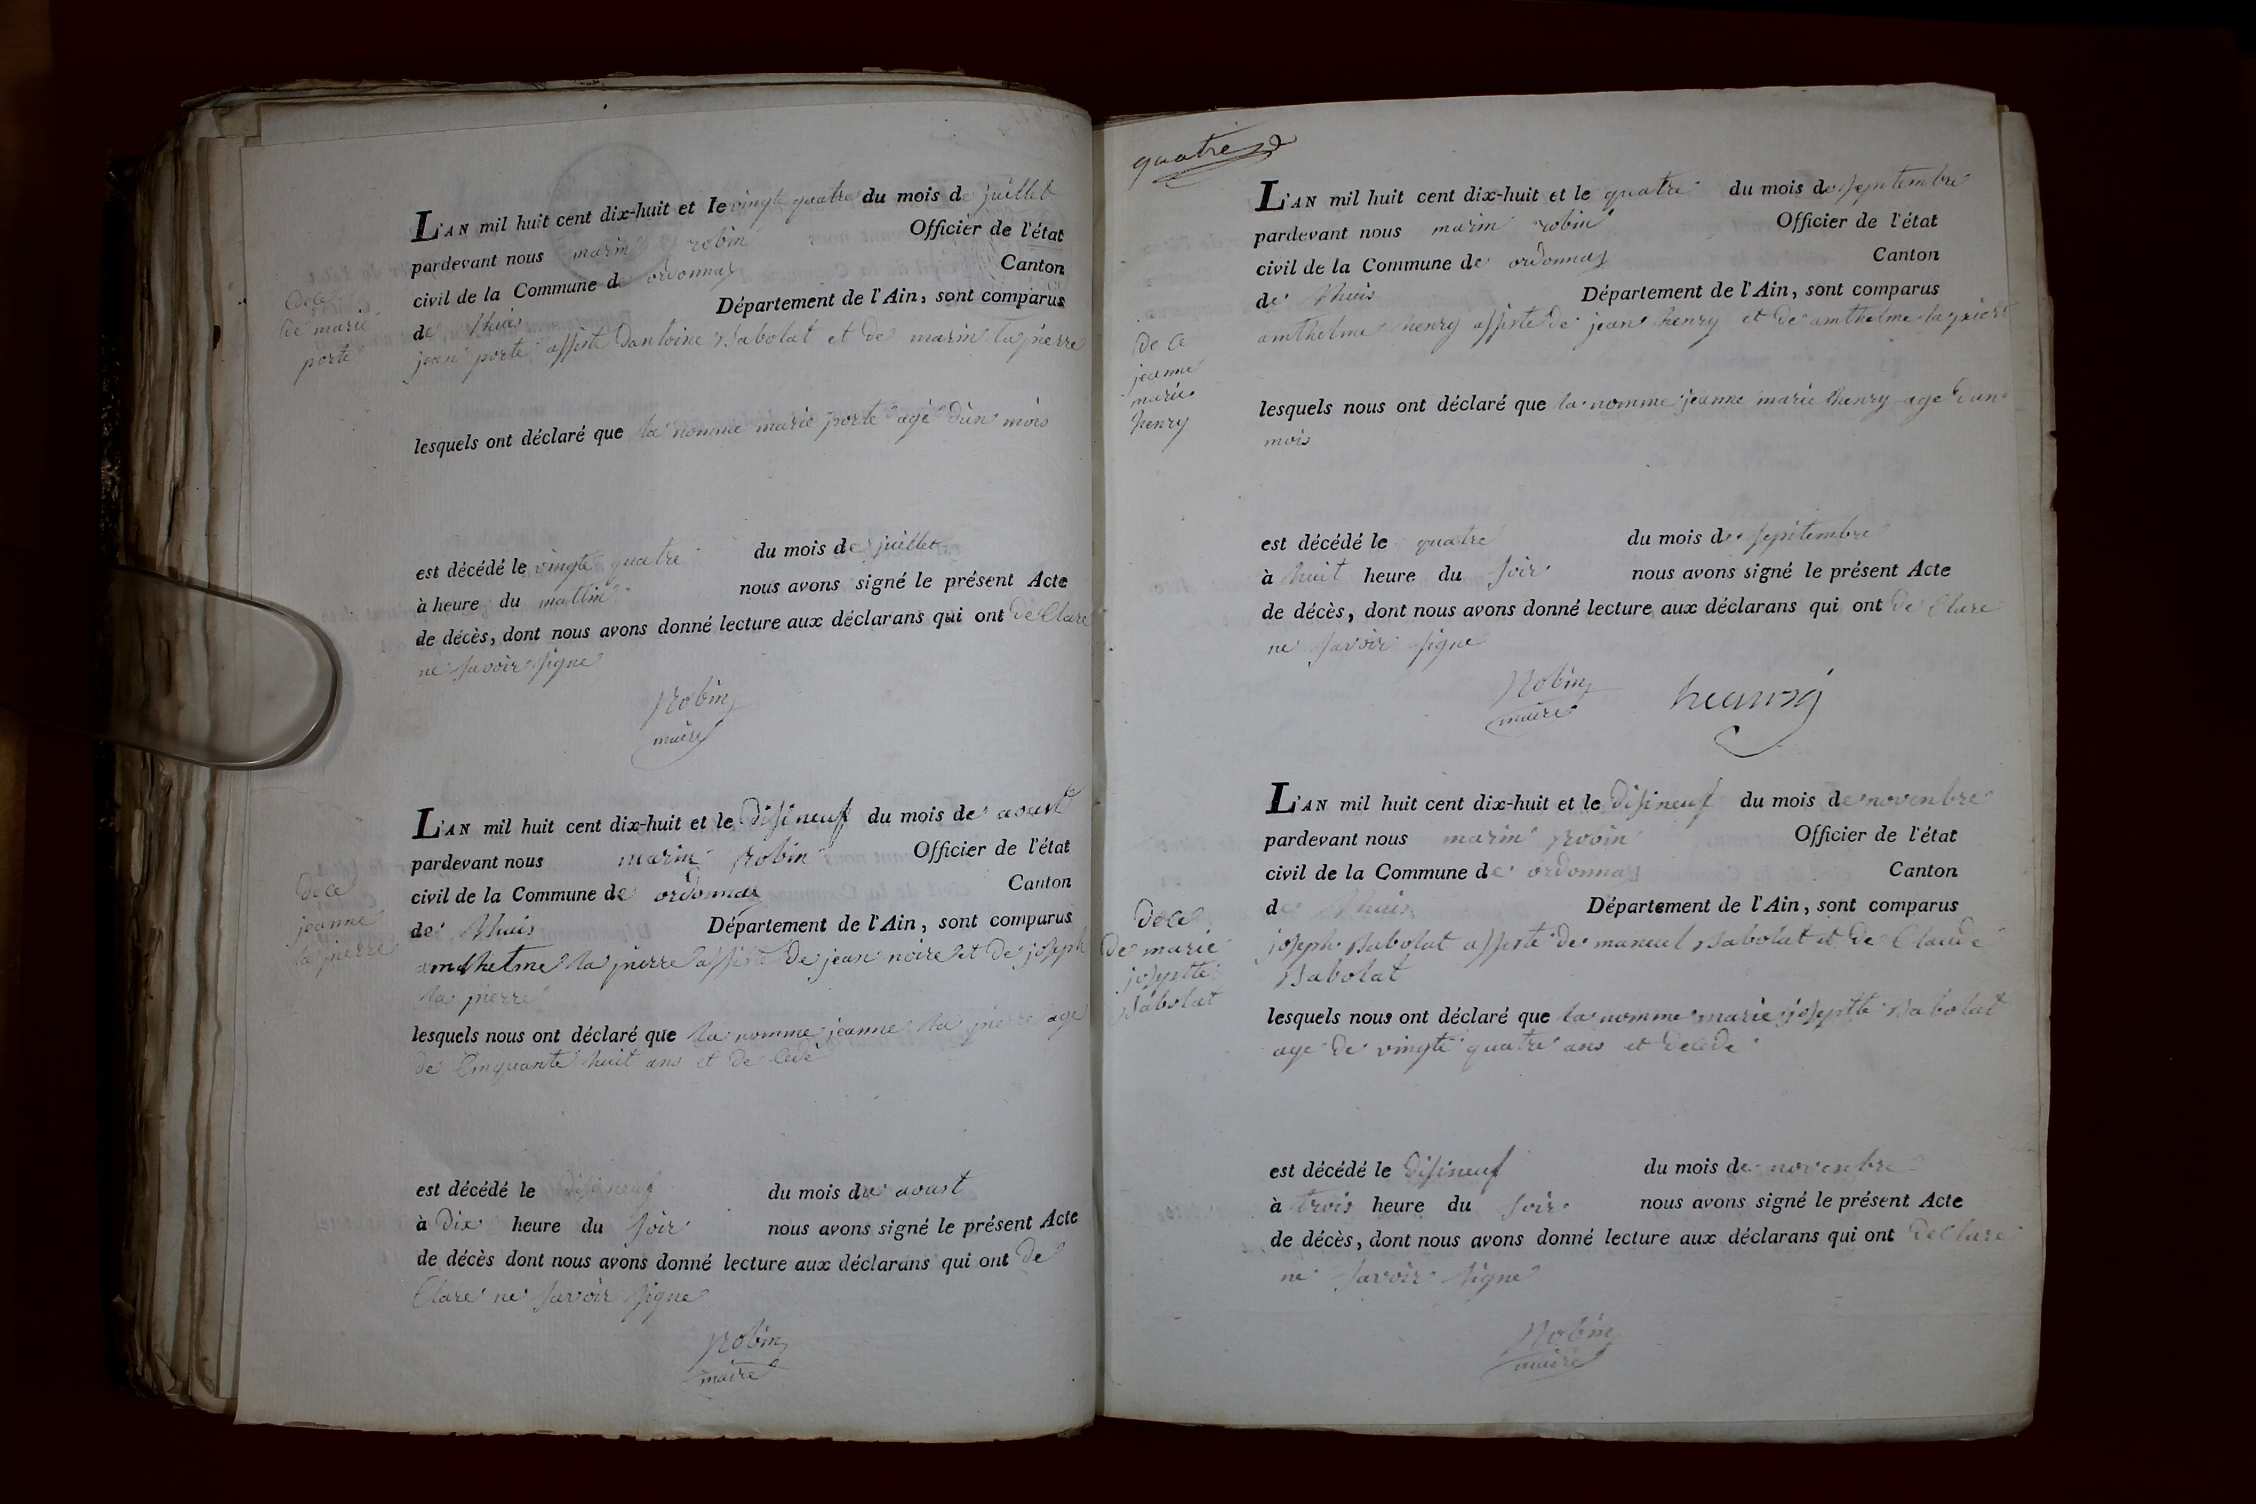 L'AN mil huit cent dix-huit et le vingt quatre du mois de juillet
pardevant nous marin robin Officier de l'état
civil de la Commune de ordonnaz Canton
de lhuis Département de l'Ain, sont comparus
jean porte assisté dantoine Babolat et de marin la pierre
de marie
porte
lesquels ont déclaré que la nomme marie porte agé dun mois
est décédé le vingte quatre du mois de juillet
à heure du mattin nous avons signé le présent Acte
de décès, dont nous avons donné lecture aux déclarans qui ont de Clare
ne savoir signe
Robin
maire
L'AN mil huit cent dix-huit et le disineuf du mois de aoust
pardevant nous marin robin Officier de l'état
civil de la Commune de ordonnaz Canton
de lhuis Département de l'Ain, sont comparus
amthelme la pierre assisté de jean noire et de joseph
la pierre
de ce
jeanne
la pierre
lesquels nous ont déclaré que la nomme jeanne la pierre age
de Cinquante huit ans et de cedé
est décédé le disineuf du mois de aoust
à dix heure du soir nous avons signé le présent Acte
de décès dont nous avons donné lecture aux déclarans qui ont de
Clare ne savoir signe
Robin
maire
quatre
L'AN mil huit cent dix-huit et le quatre du mois de septembre
pardevant nous marin robin Officier de l'état
civil de la Commune de ordonnaz Canton
de lhuis Département de l'Ain, sont comparus
amthelme henry assisté de jean henry et de amthelme la
de ce
jeanne
marie
henry
lesquels nous ont déclaré que la nomme jeanne marie henry age dun
mois
est décédé le quatre du mois de septembre
à huit heure du soir nous avons signé le présent Acte
de décès, dont nous avons donné lecture aux déclarans qui ont de Clare
ne savoir signe
Robin
maire
L'AN mil huit cent dix-huit et le disineuf du mois de novenbre
pardevant nous marin robin Officier de l'état
civil de la Commune de ordonnaz Canton
de lhuis Département de l'Ain, sont comparus
joseph Babolat assisté de manuel Babolat et de Claude
Babolat
de ce
de marie
josephte
Babolat
lesquels nous ont déclaré que la nomme marie josephte Babolat
age de vingte quatre ans et decede
est décédé le disineuf du mois de novenbre
à trois heure du soir nous avons signé le présent Acte
de décès, dont nous avons donné lecture aux déclarans qui ont de Clare
ne savoir signe
Robin
maire